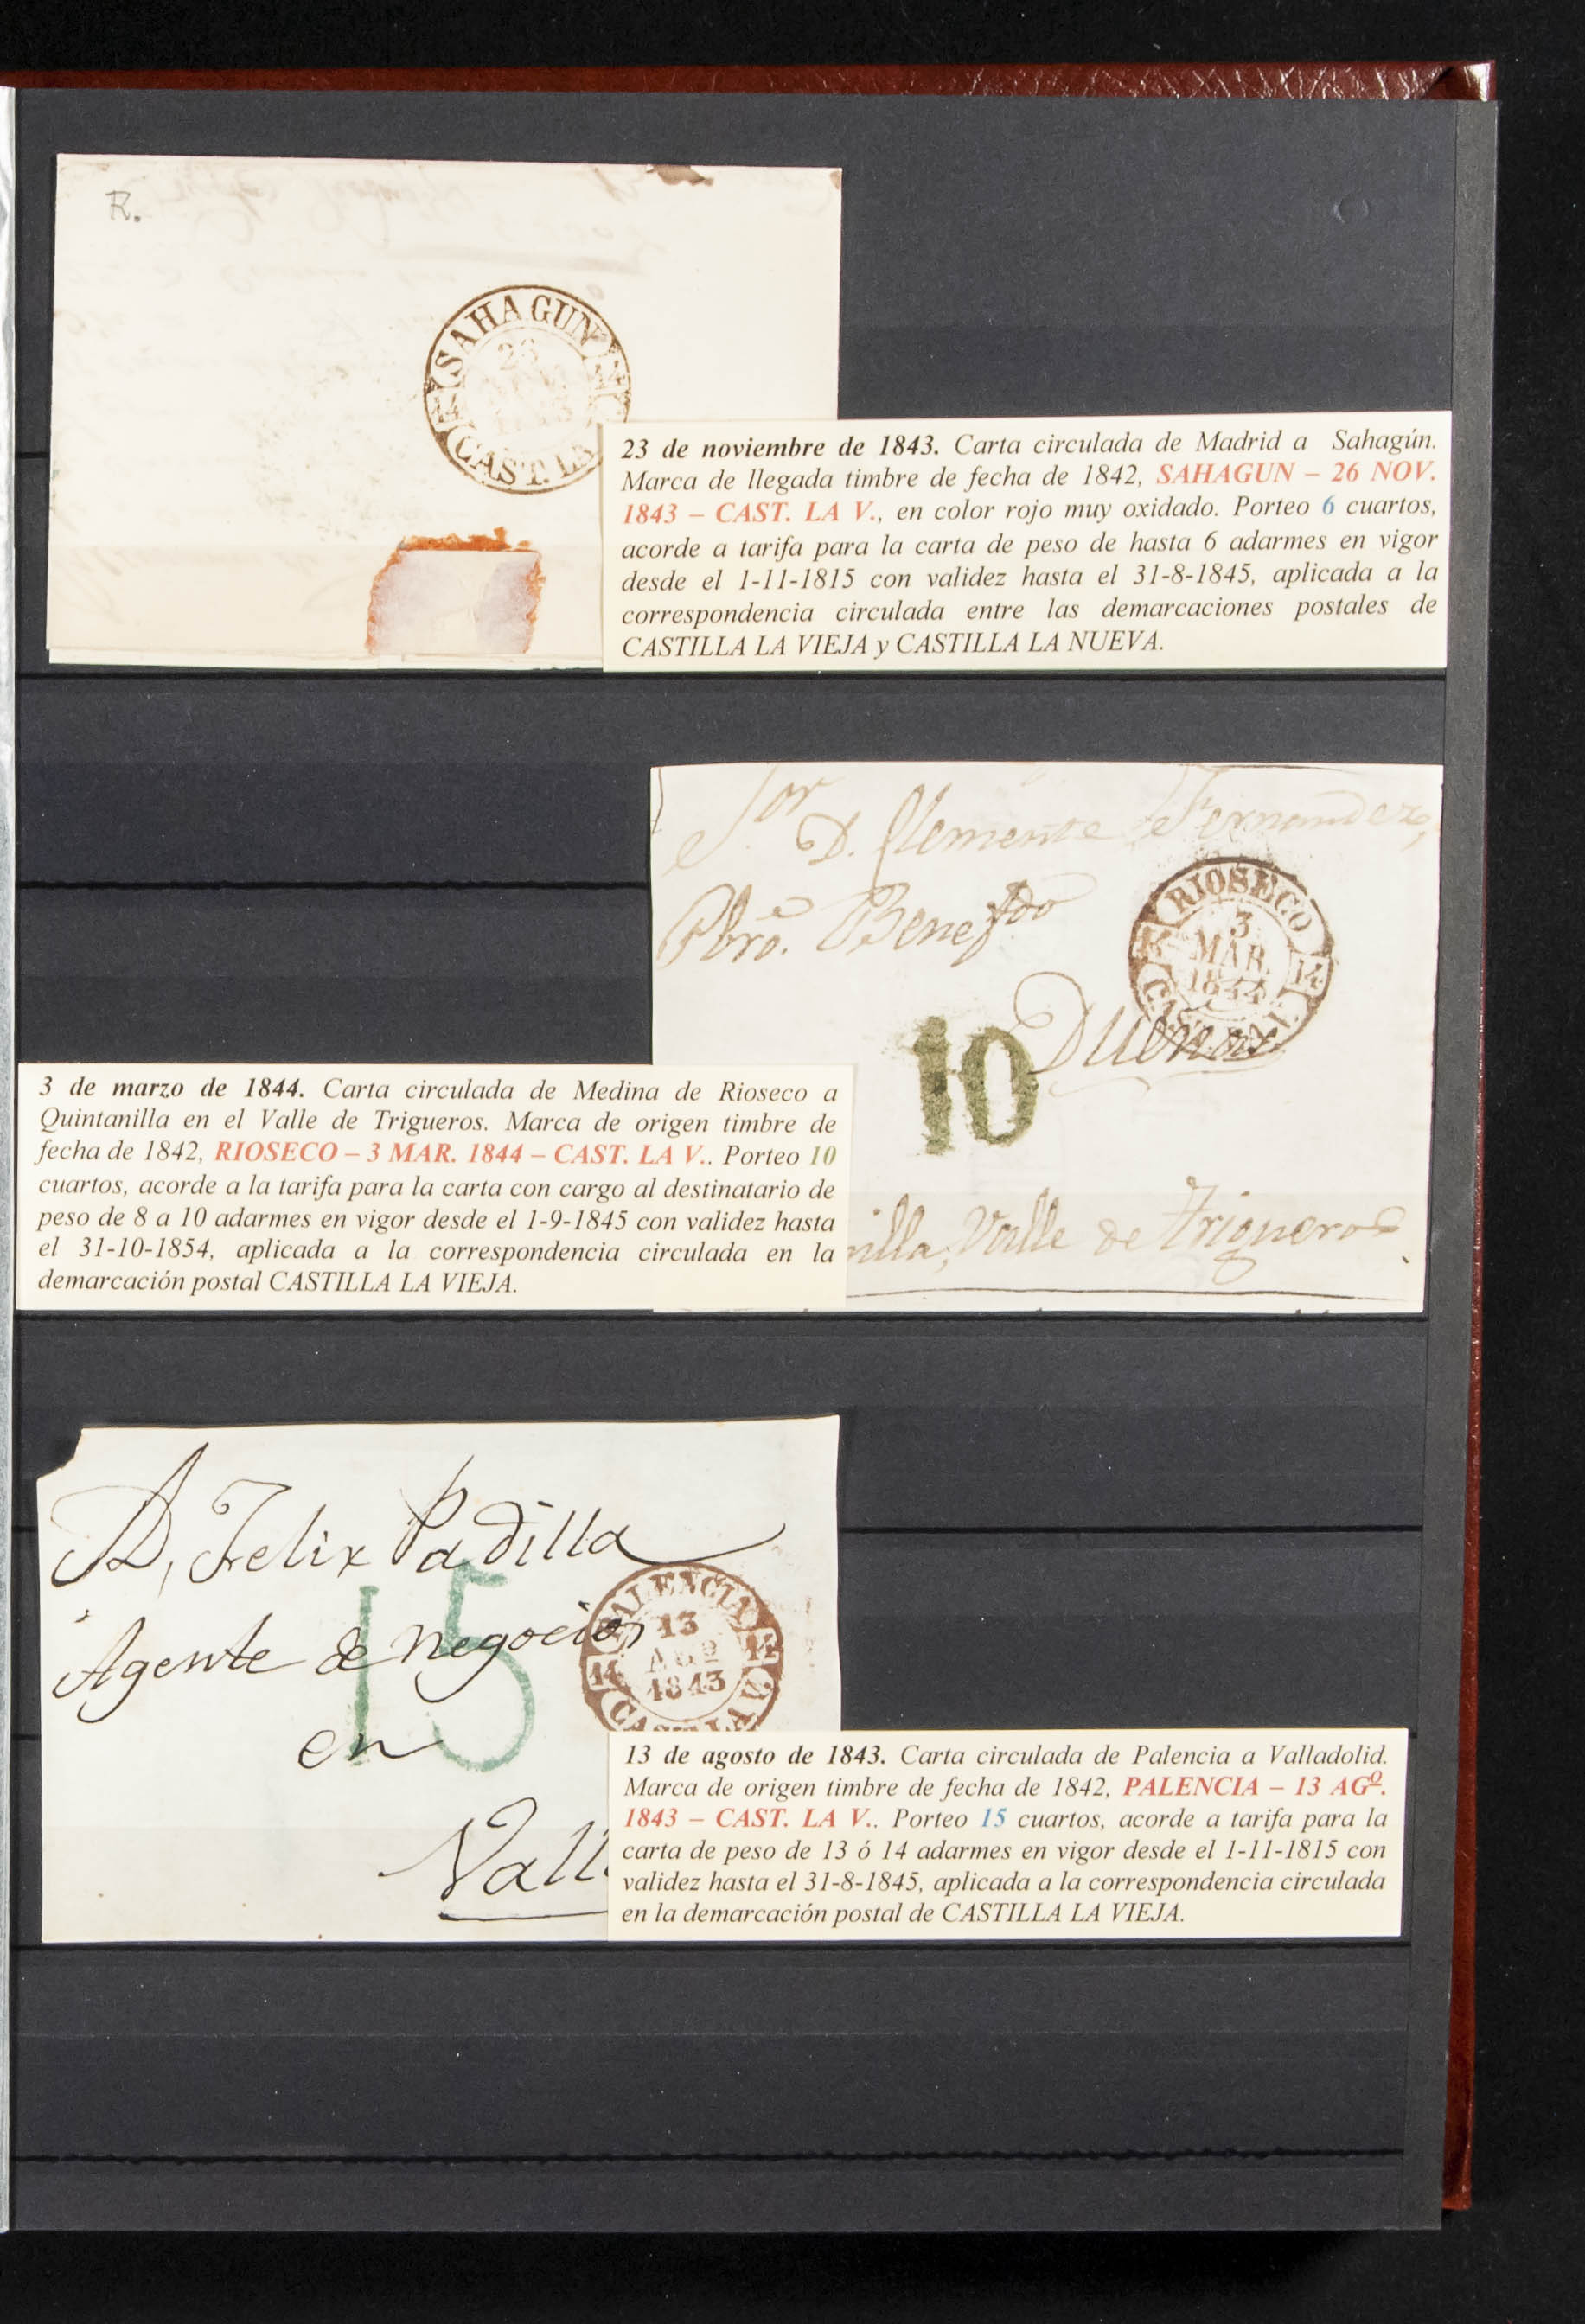 R.
SAHAGUN
26
CAST. LA
23 de noviembre de 1843. Carta circulada de Madrid a Sahagún.
Marca de llegada timbre de fecha de 1842, SAHAGUN – 26 NOV.
1843 – CAST. LA V., en color rojo muy oxidado. Porteo 6 cuartos,
acorde a tarifa para la carta de peso de hasta 6 adarmes en vigor
desde el 1-11-1815 con validez hasta el 31-8-1845, aplicada a la
correspondencia circulada entre las demarcaciones postales de
CASTILLA LA VIEJA y CASTILLA LA NUEVA.
Sor D. Clemente Fernandez,
Pbro. Benefdo
RIOSECO
3
MAR.
1844
14
Dueñas
10
nilla, Valle de Trigueros
3 de marzo de 1844. Carta circulada de Medina de Rioseco a
Quintanilla en el Valle de Trigueros. Marca de origen timbre de
fecha de 1842, RIOSECO – 3 MAR. 1844 – CAST. LA V.. Porteo 10
cuartos, acorde a la tarifa para la carta con cargo al destinatario de
peso de 8 a 10 adarmes en vigor desde el 1-9-1845 con validez hasta
el 31-10-1854, aplicada a la correspondencia circulada en la
demarcación postal CASTILLA LA VIEJA.
D. Felix Padilla
Agente de negocios
en
Vall
15
PALENCIA
13
AGº
1843
14 14
CAST. LA V
13 de agosto de 1843. Carta circulada de Palencia a Valladolid.
Marca de origen timbre de fecha de 1842, PALENCIA – 13 AGº.
1843 – CAST. LA V.. Porteo 15 cuartos, acorde a tarifa para la
carta de peso de 13 ó 14 adarmes en vigor desde el 1-11-1815 con
validez hasta el 31-8-1845, aplicada a la correspondencia circulada
en la demarcación postal de CASTILLA LA VIEJA.